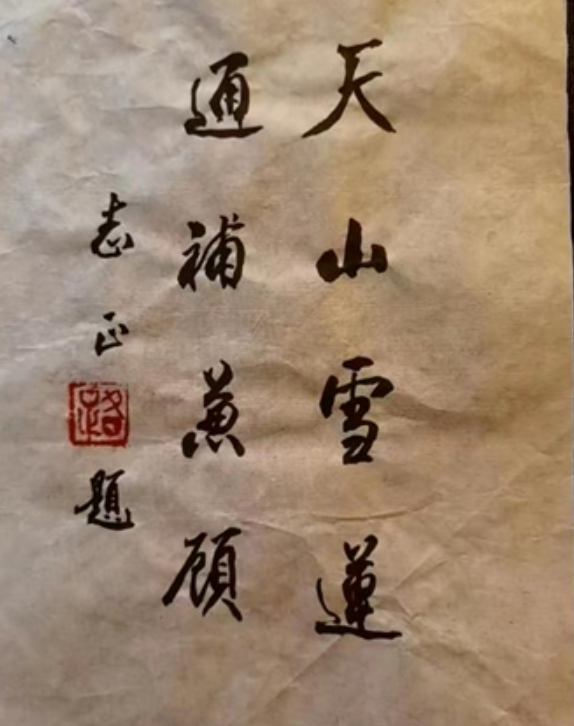 天山雪蓮
通補兼顧
志正
路
題